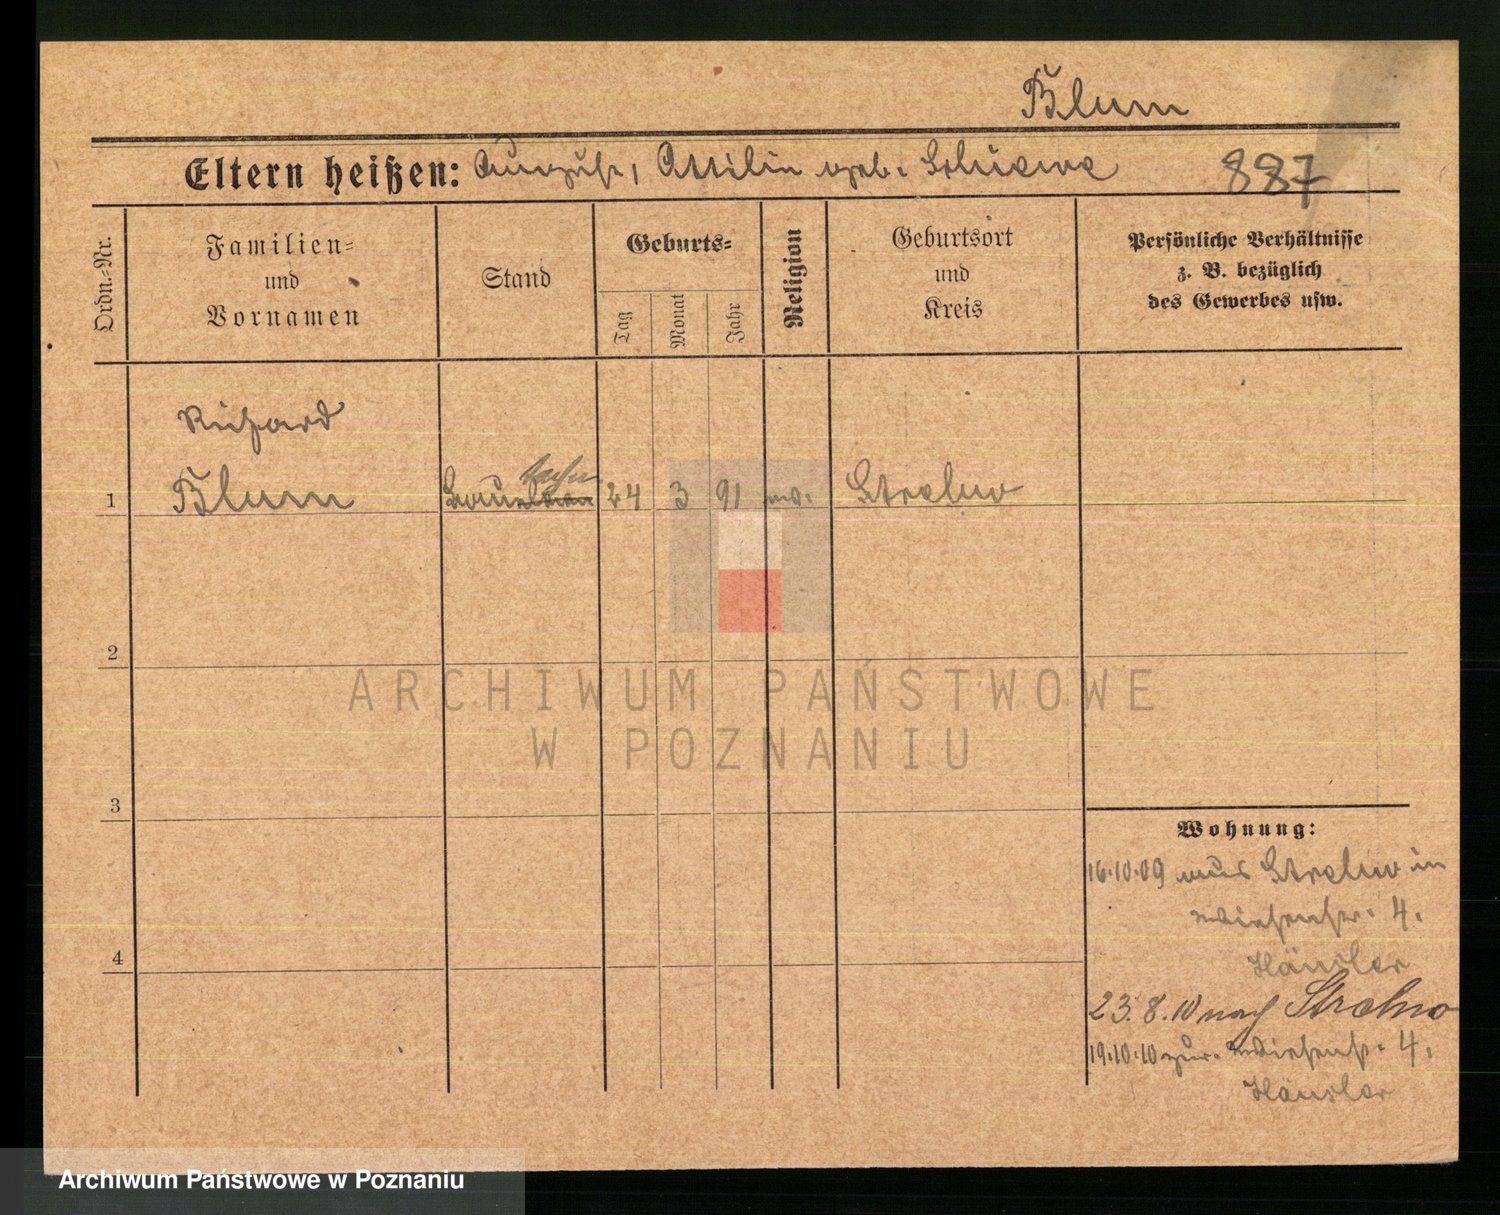 Blum
Eltern heißen: August, Ottilie geb. 887
Ordn.-Nr.
Familien-
und
Vornamen
Stand
Geburts-
Tag
Monat
Jahr
Religion
Geburtsort
und
Kreis
Persönliche Verhältnisse
z. B. bezüglich
des Gewerbes usw.
Richard
1 Blum 24 3 91 ev. Strelno
2
ARCHIWUM PAŃSTWOWE
W POZNANIU
3
Wohnung:
16.10.09 aus Strelno in
Wiesenstr. 4.
Häusler
4
23.8.10 nach Strelno
19.10.10 zur. Wiesenst. 4.
Häusler
Archiwum Państwowe w Poznaniu